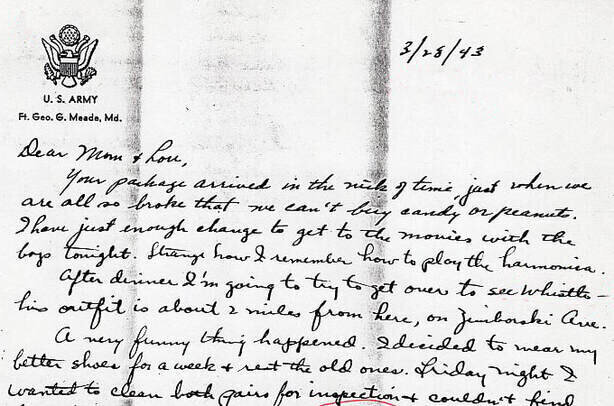 3/28/43
U. S. ARMY
Ft. Geo. G. Meade, Md.
Dear Mom & Lou,
Your package arrived in the nick of time, just when we
are all so broke that we can't buy candy or peanuts.
I have just enough change to get to the movies with the
boys tonight. Strange how I remember how to play the harmonica.
After dinner I'm going to try to get over to see Whistle –
his outfit is about 2 miles from here, on Zimborski Ave.
A very funny thing happened. I decided to wear my
better shoes for a week & rest the old ones. Friday night I
wanted to clean both pairs for inspection & couldn't find